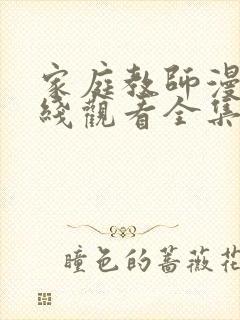 家庭教師漫
綫觀看全集
瞳色的薔薇花